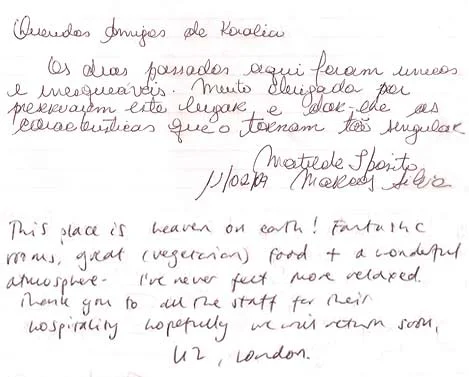 Queridos Amigos de Karalia
Os dias passados aqui foram unicos
e inesquecíveis. Muito obrigada por
preservarem este lugar e dar-lhe as
características que o tornam tão singular
Matilde Sposito
11/02/09 Marcos Silva
This place is heaven on earth! Fantastic
rooms, great (vegetarian) food + a wonderful
atmosphere - I've never felt more relaxed.
Thank you to all the staff for their
hospitality hopefully we will return soon,
London.